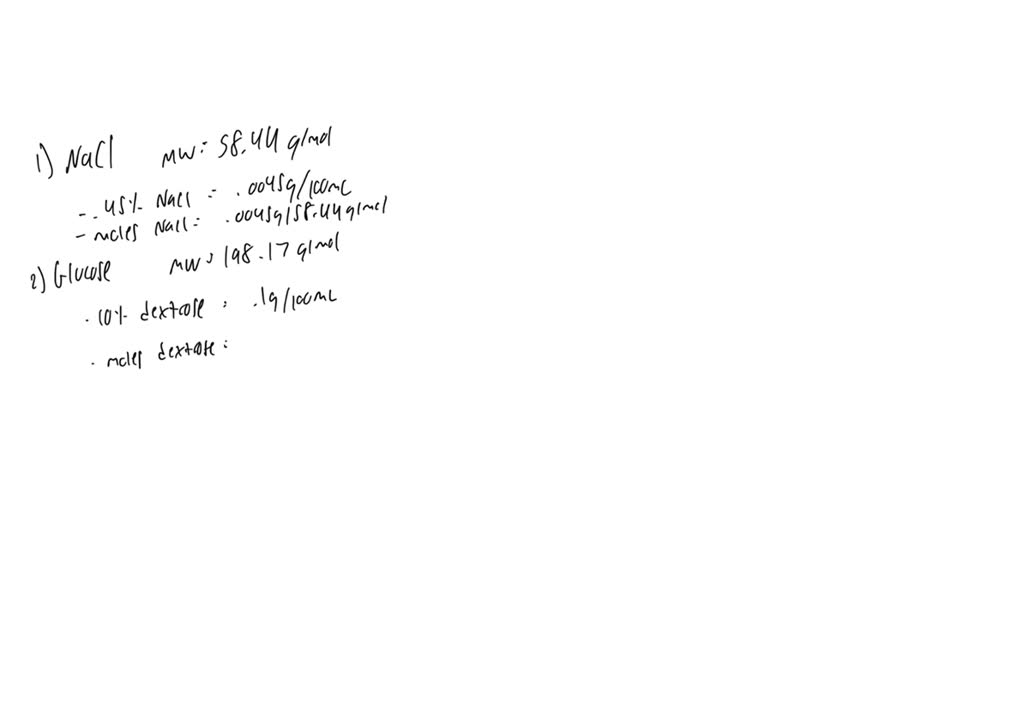 1) NaCl MW: 58.44 g/mol
- .45% NaCl = .0045g/100mL
- moles NaCl = .0045g/58.44g/mol
2) Glucose MW: 198.17 g/mol
. 10% dextrose : .1g/100mL
. moles dextrose :